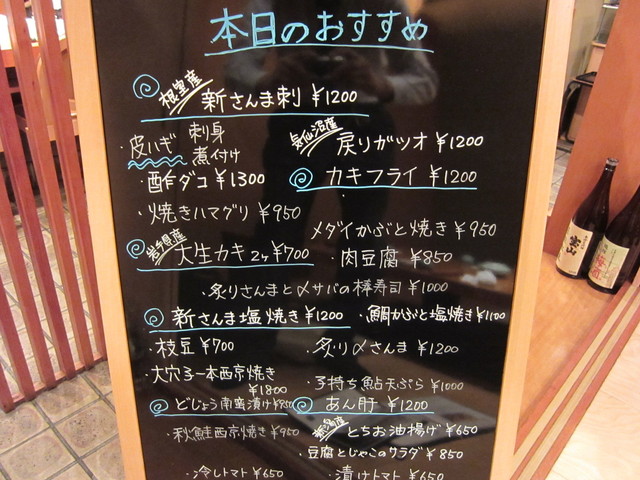 本日のおすすめ
根室産
新さんま刺 ¥1200
・皮ハギ 刺身
煮付け
気仙沼産
戻りガツオ ¥1200
・酢ダコ ¥1300
カキフライ ¥1200
・焼きハマグリ ¥950
メダイかぶと焼き ¥950
岩手県産
大生カキ 2ヶ ¥700
・肉豆腐 ¥850
・炙りさんまと〆サバの棒寿司 ¥1000
新さんま塩焼き ¥1200
・鯛かぶと塩焼き ¥1100
・枝豆 ¥700
・炙り〆さんま ¥1200
大穴子一本西京焼き
¥1800
・子持ち鮎天ぷら ¥1000
どじょう南蛮漬け ¥850
あん肝 ¥1200
・秋鮭西京焼き ¥950
新潟産
とちお油揚げ ¥650
・豆腐とじゃこのサラダ ¥850
・冷しトマト ¥650
・漬けトマト ¥650